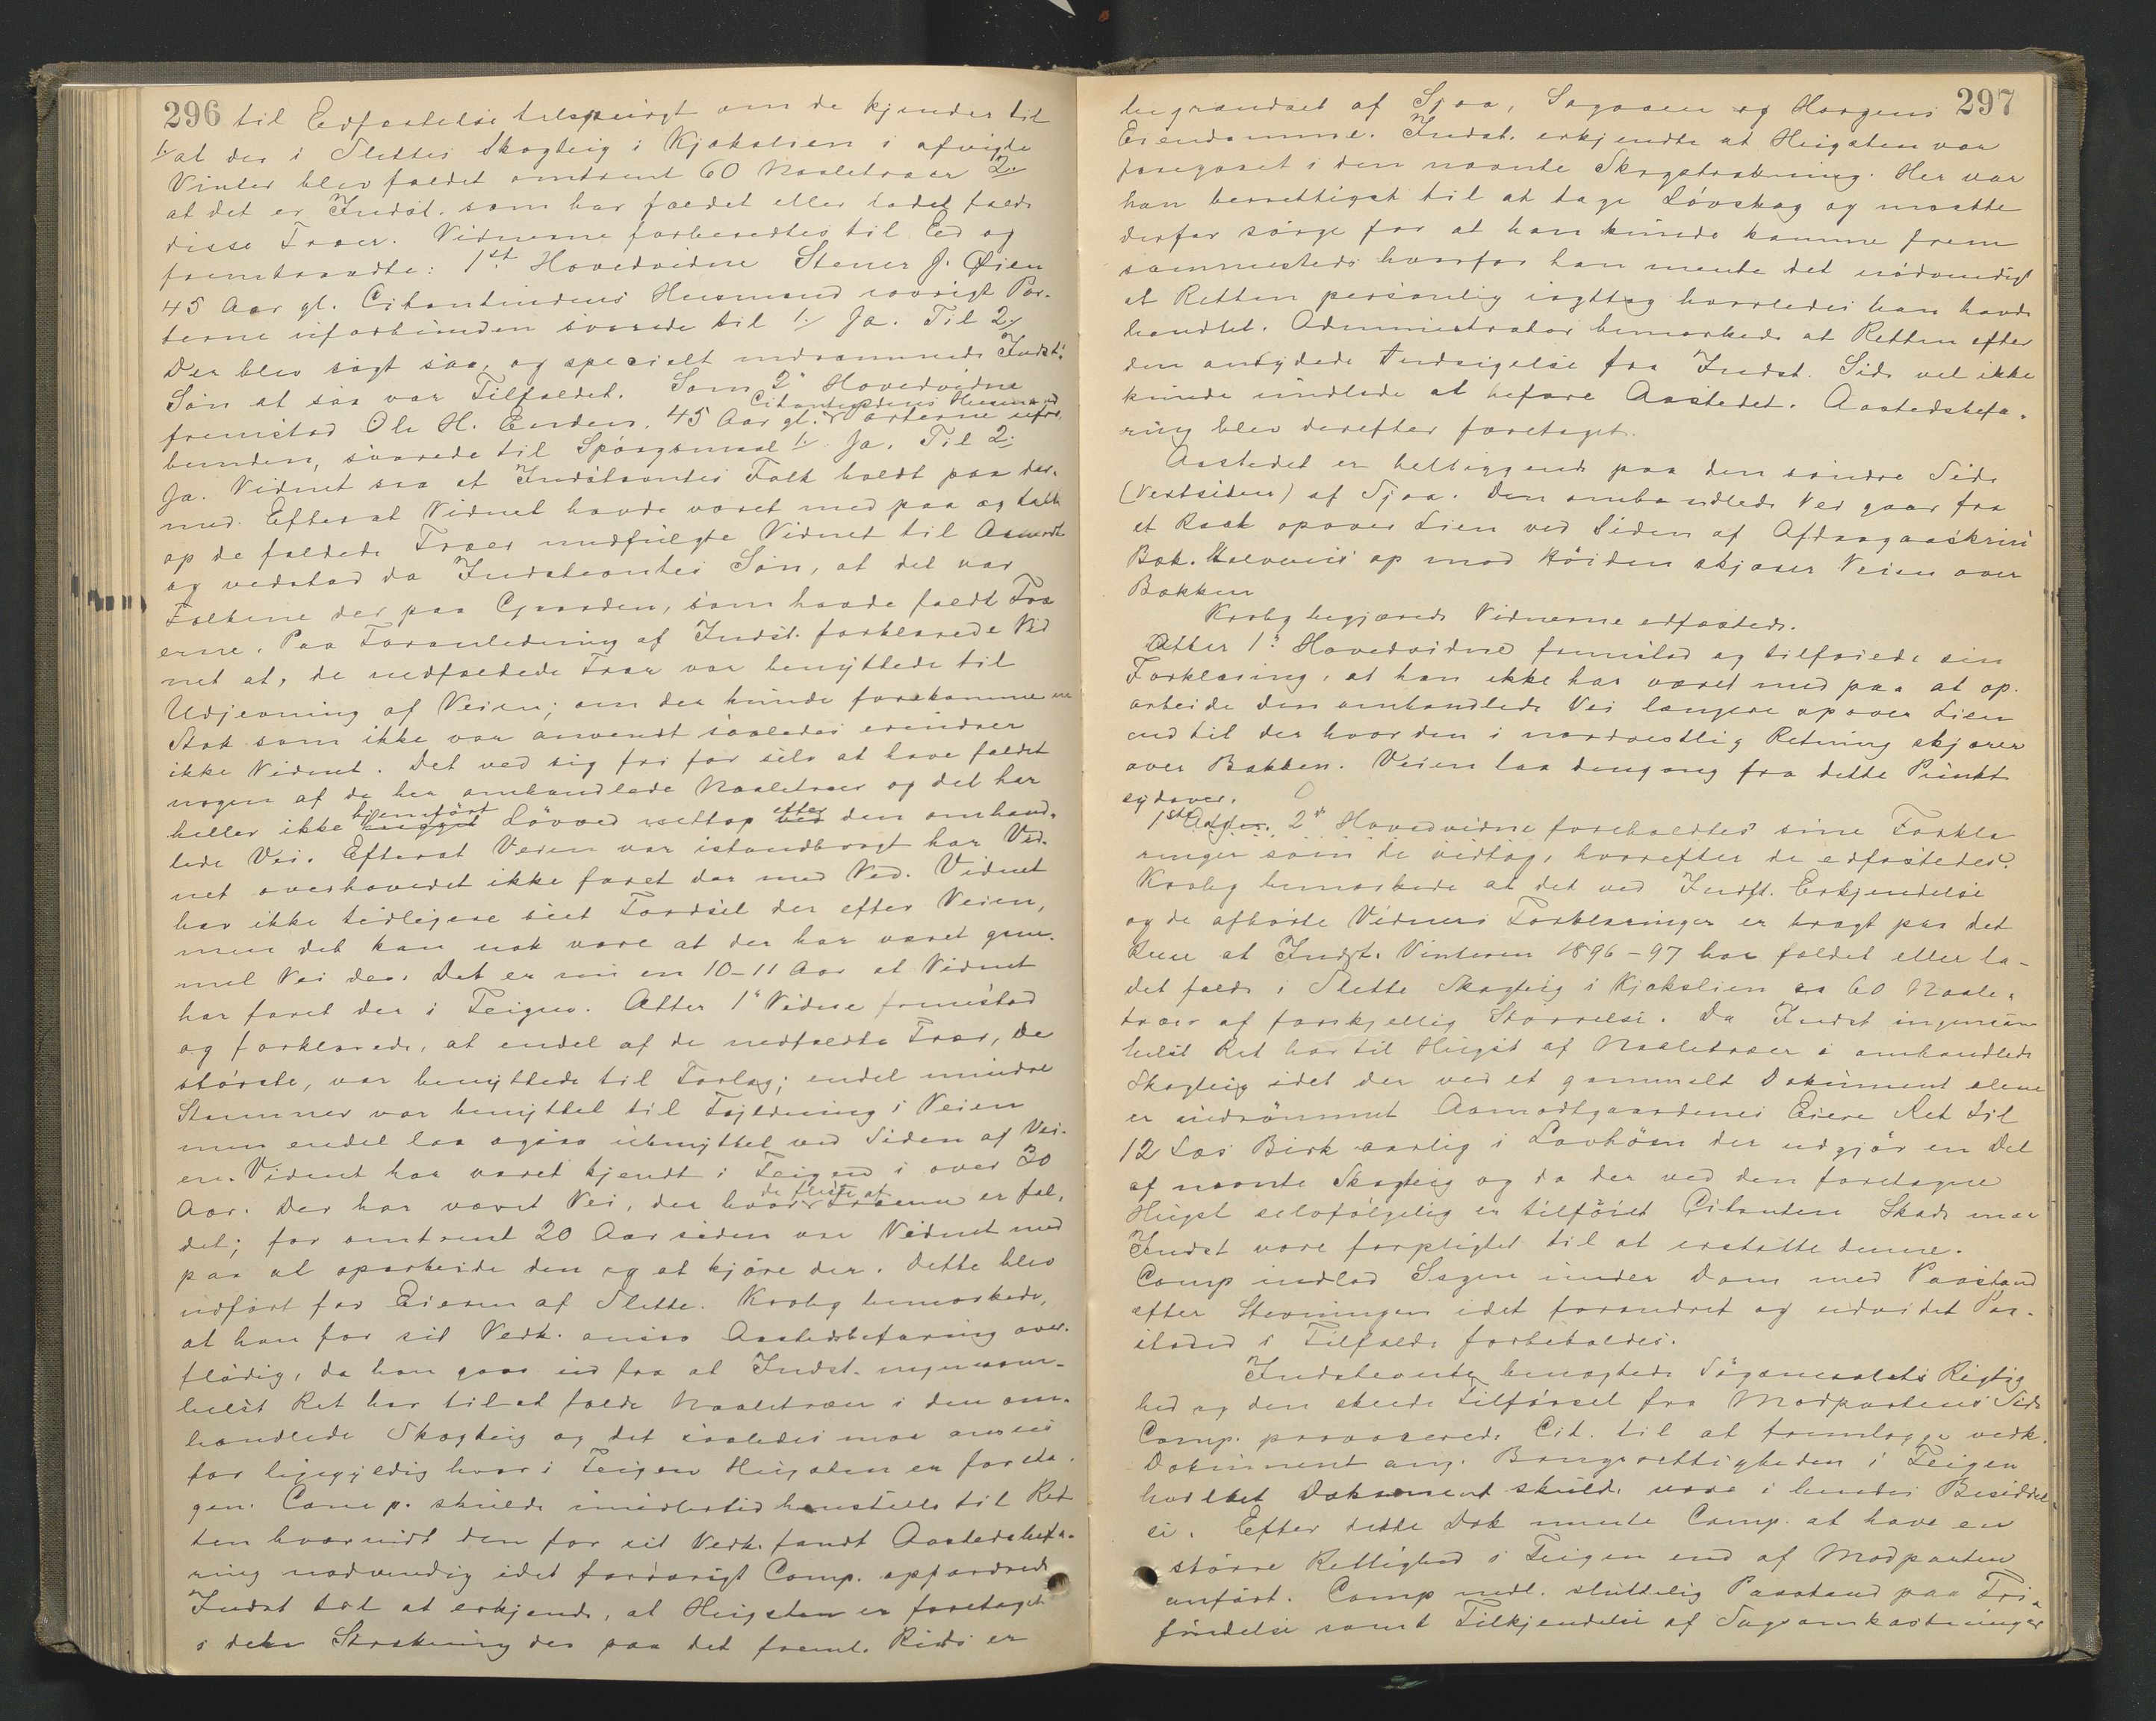 296 til Edfæstelse tilspurgt om de kjender til
1. at der i Slettes Skogteig i Kjøkolien i afvigte
Vinter blev fældet omtrent 60 Naaletræer 2.
at det er Indst. som har fældet eller ladet fælde
disse Træer. Vidnerne forberedtes til Ed og
fremtraadte: 1st Hovedvidne Stener J. Øien
45 Aar gl. Citantindens Husmand iøvrigt Par-
terne uforbunden svarede til 1/ Ja. Til 2/
Der blev sagt saa, og specielt indrømmede Indst's
Søn at saa var Tilfældet. Som 2' Hovedvidne
fremstod Ole H. Enden, 45 Aar gl. Citantindens Husmand Parterne ufor-
bunden, svarede til Spørgsmaal 1. Ja. Til 2.
Ja. Vidnet saa at Indstævntes Folk holdt paa der-
med. Efterat Vidnet havde været med paa og talt
op de fældede Træer medfulgte Vidnet til Aamodt
og vedstod da Indstevntes Søn, at det var
Folkene der paa Gaarden, som havde fældt Træ
erne. Paa Foranledning af Indst. forklarede Vid
net at, de nedfældede Trær var benyttede til
Udjevning af Veien; om der kunde forekomme en
Stok som ikke var anvendt saaledes erindrer
ikke Vidnet. Det ved sig fri for selv at have fældet
nogen af de her omhandlede Naaletræer og det har
heller ikke hjemført Løvved nettop efter den omhand-
lede Vei. Efterat Veien var istandbragt har Vid-
net overhovedet ikke faret der med Ved. Vidnet
har ikke tidligere seet Færdsel der efter Veien,
men det kan nok være at der har været gam-
mel Vei der. Det er nu en 10-11 Aar at Vidnet
har faret der i Teigen. Atter 1' Vidne fremstod
og forklarede, at endel af de nedfældte Trær, de
største, var benyttede til Forlag; endel mindre
Stammer var benyttet til Fyldning i Veien
men endel laa ogsaa ubenyttet ved Siden af Vei-
en. Vidnet har været kjendt i Teigen i over 30
Aar. Der har været Vei, der hvor de fleste af Træerne er fæl-
det; for omtrent 20 Aar siden var Vidnet med
paa at oparbeide den og at kjøre der. Dette blev
udført for Eieren af Slette. Kroby bemærkede,
at han for sit Vedk. ansaa Aastedsbefaring over-
flødig, da han gaar ud fra at Indst. ingensom-
helst Ret har til at fælde Naaletræer i den om-
handlede Skogteig og det saaledes maa ansees
for ligegyldig hvor i Teigen Hugsten er foreta-
gen. Comp. skulde imidlertid henstille til Ret
ten hvorvidt den for sit Vedk. fandt Aastedsbefa-
ring nødvendig idet forøvrigt Comp. opfordrede
Indst til at erkjende, at Hugsten er foretaget
i den Strækning der paa det freml. Rids er
297
begrændset af Sjoa, Sagaaen og Horgens
Eiendomme. Indst. erkjendte at Hugsten var
foregaaet i den nævnte Skogstrækning. Her var
han berettiget til at tage Løvskog og maatte
derfor sørge for at han kunde komme frem
sammesteds hvorfor han mente det nødvendigt
at Retten personlig iagttog hvorledes han havde
handlet. Administrator bemærkede at Retten efter
den antydede Indsigelse fra Indst. Side vel ikke
kunde undlade at befare Aastedet. Aastedsbefa-
ring blev derefter foretaget.
Aastedet er beliggende paa den søndre Side
(Vestsiden) af Sjoa. Den omhandlede Vei gaar fra
et Rast opover Lien ved Siden af
Bæk. Halvveis op mod Høiden skjærer Veien over
Bækken
Kroby begjærede Vidnerne edfæstede.
Atter 1' Hovedvidne fremstod og tilføiede sin
Forklaring, at han ikke har været med paa at op-
arbeide den omhandlede Vei længere opover Lien
end til der hvor den i nordvestlig Retning skjærer
over Bækken. Veien laa dengang fra dette Punkt
sydover.
1ste og 2' Hovedvidne foreholdtes sine Forkla
ringer som de vedtog, hvorefter de edfæstedes.
Kroby bemærkede at det ved Indst. Erkjendelse
og de afhørte Vidners Forklaringer er bragt paa det
Rene at Indst. Vinteren 1896-97 har fældet eller la-
det fælde i Slette Skogteig i Kjøkolien ca 60 Naale-
træer af forskjellig Størrelse. Da Indst ingensom
helst Ret har til Hugst af Naaletræer i omhandlede
Skogteig idet der ved et gammelt Dokument alene
er indrømmet Aamodtgaardenes Eiere Ret til
12 Læs Birk aarlig i Lovhøen der udgjør en Del
af nævnte Skogteig og da der ved den foretagne
Hugst selvfølgelig er tilføiet Citanten Skade maa
Indst være forpligtet til at erstatte denne.
Comp indlod Sagen under Dom med Paastand
efter Stevningen idet forandret og udvidet Paa-
stand i Tilfælde forbeholdes.
Indstevnte benægtede Søgsmaalets Rigtig
hed og den skeede Tilførsel fra Modpartens Side
Comp. provoserede Cit. til at fremlægge vedk.
Dokument ang. Brugsrettigheden i Teigen
hvilket Dokument skulde være i hendes Besiddel-
se. Efter dette Dok mente Comp. at have en
større Rettighed i Teigen end af Modparten
anført. Comp nedl. sluttelig Paastand paa Fri-
findelse samt Tilkjendelse af Sagsomkostninger